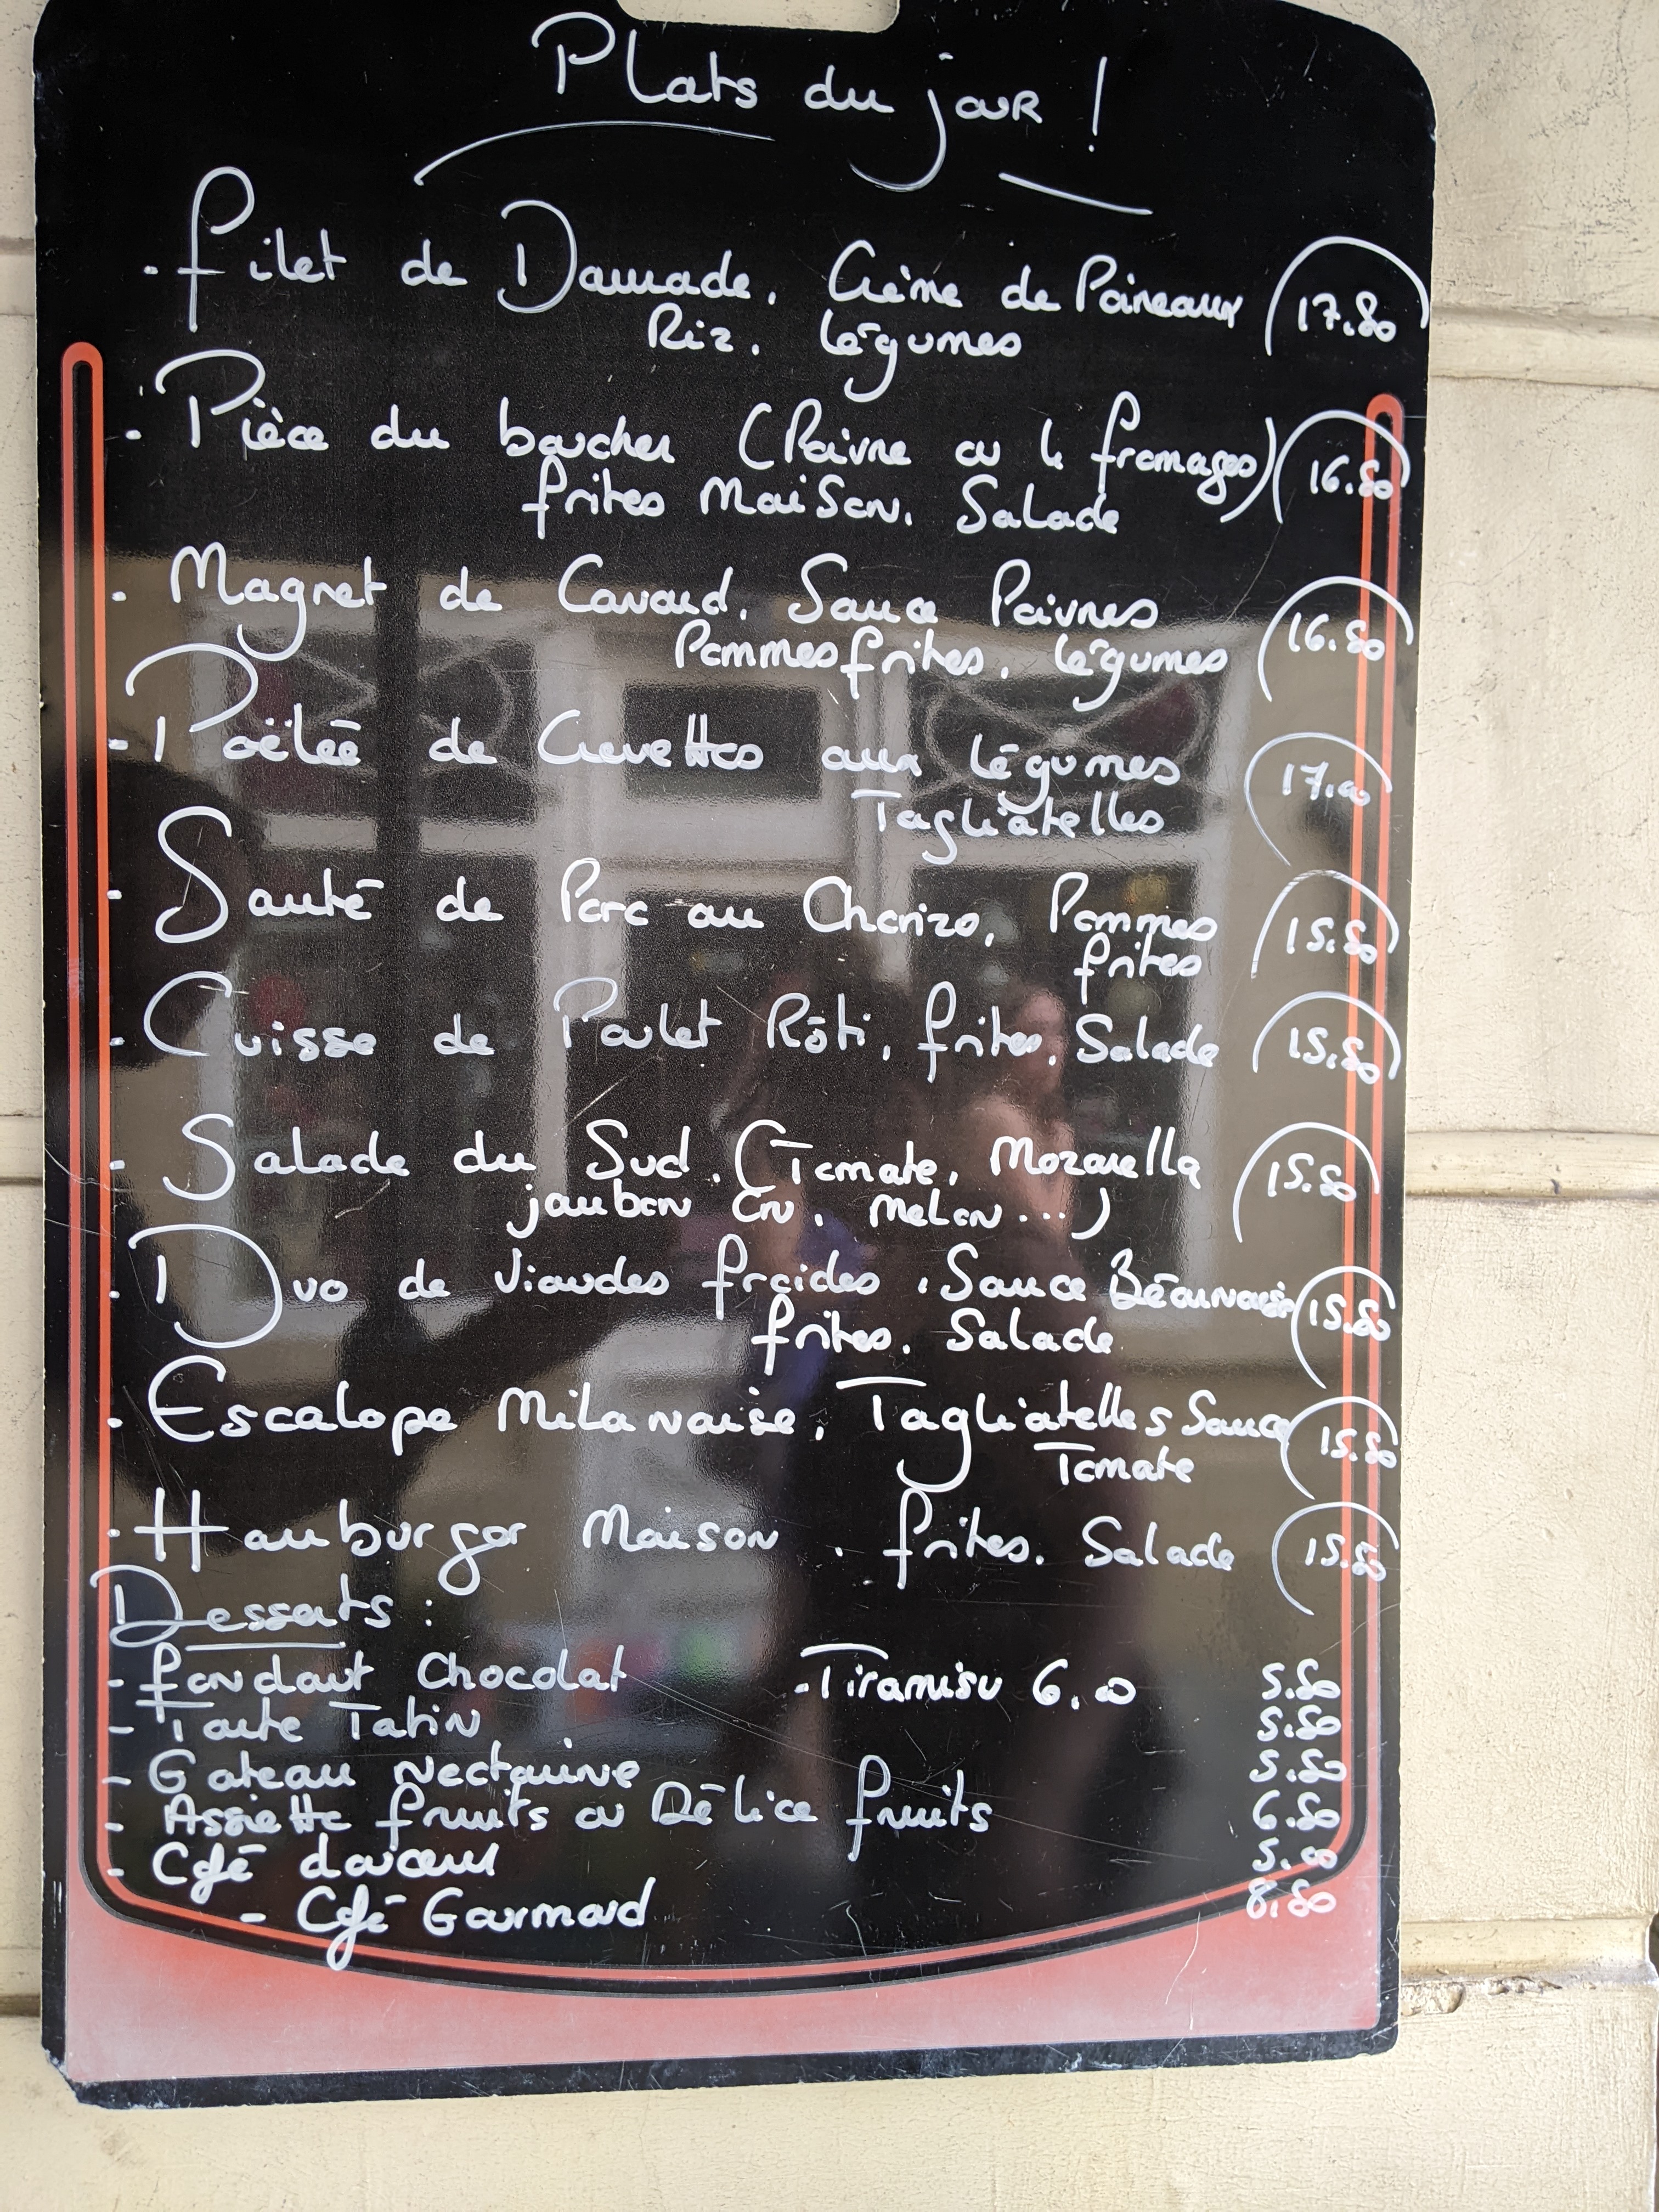 Plats du jour !
. Filet de Daurade, Crème de Poireaux 17.80
Riz, légumes
. Pièce du boucher (Poivre ou 4 fromages) 16.80
frites Maison, Salade
. Magret de Canard, Sauce Poivres 16.80
Pommes frites, légumes
- Poëlée de Crevettes aux légumes 17.00
Tagliatelles
- Sauté de Porc au Chorizo, Pommes 15.80
frites
- Cuisse de Poulet Rôti, frites, Salade 15.80
- Salade du Sud. (Tomate, Mozarella 15.80
jambon Cru, Melon...)
. Duo de Viandes froides, Sauce Béarnaise 15.80
frites, Salade
. Escalope Milanaise, Tagliatelles Sauce 15.80
Tomate
. Hamburger Maison, frites, Salade 15.80
Desserts :
- fondant Chocolat - Tiramisu 6.00 5.80
- Tarte Tatin 5.80
- Gateau Nectarine 5.80
- Assiette fruits ou Délice fruits 6.80
- Café douceur 5.00
- Café Gourmand 8.80